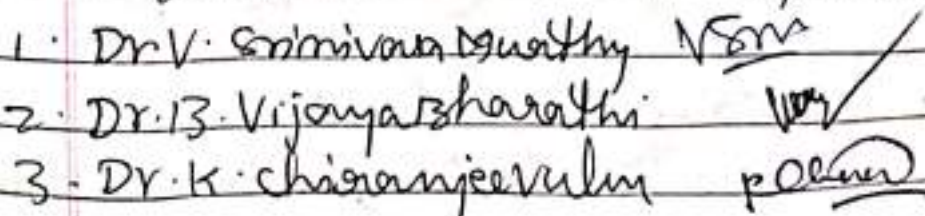 1. Dr V. Srinivasa Murthy
2. Dr. B. Vijaya Bharathi
3. Dr. K. Chiranjeevulu